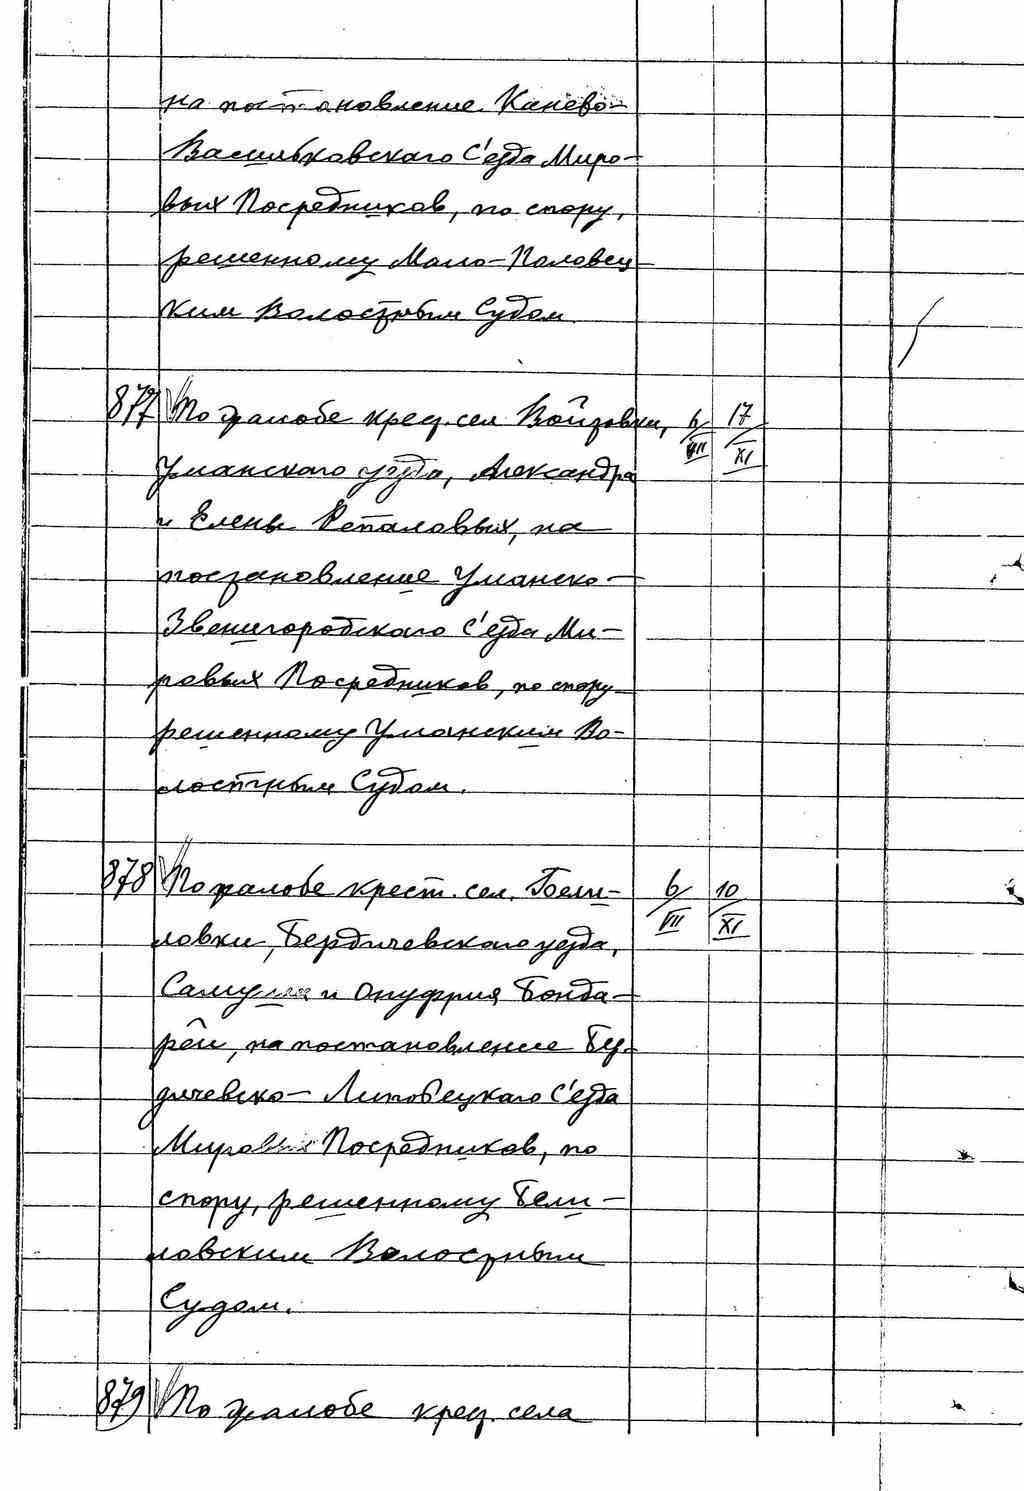 на постановление Канево-
Васильковскаго С'езда Миро-
вых Посредников, по спору,
решенному Мало-Половец-
ким Волостным Судом
877 По жалобе крест. сел. Войтовки, 6/VII 17/XI
Уманскаго уезда, Александра
и Елены Репаловых, на
постановление Уманско-
Звенигородскаго С'езда Ми-
ровых Посредников, по спору
решенному Уманским Во-
лостным Судом.
878 По жалобе крест. сел. Бели- 6/VII 10/XI
ловки, Бердичевскаго уезда,
Самуила и Онуфрия Бонда-
рей, на постановление Бер-
дичевско-Липовецкаго С'езда
Мировых Посредников, по
спору, решенному Бели-
ловским Волостным
Судом.
879 По жалобе крест. села